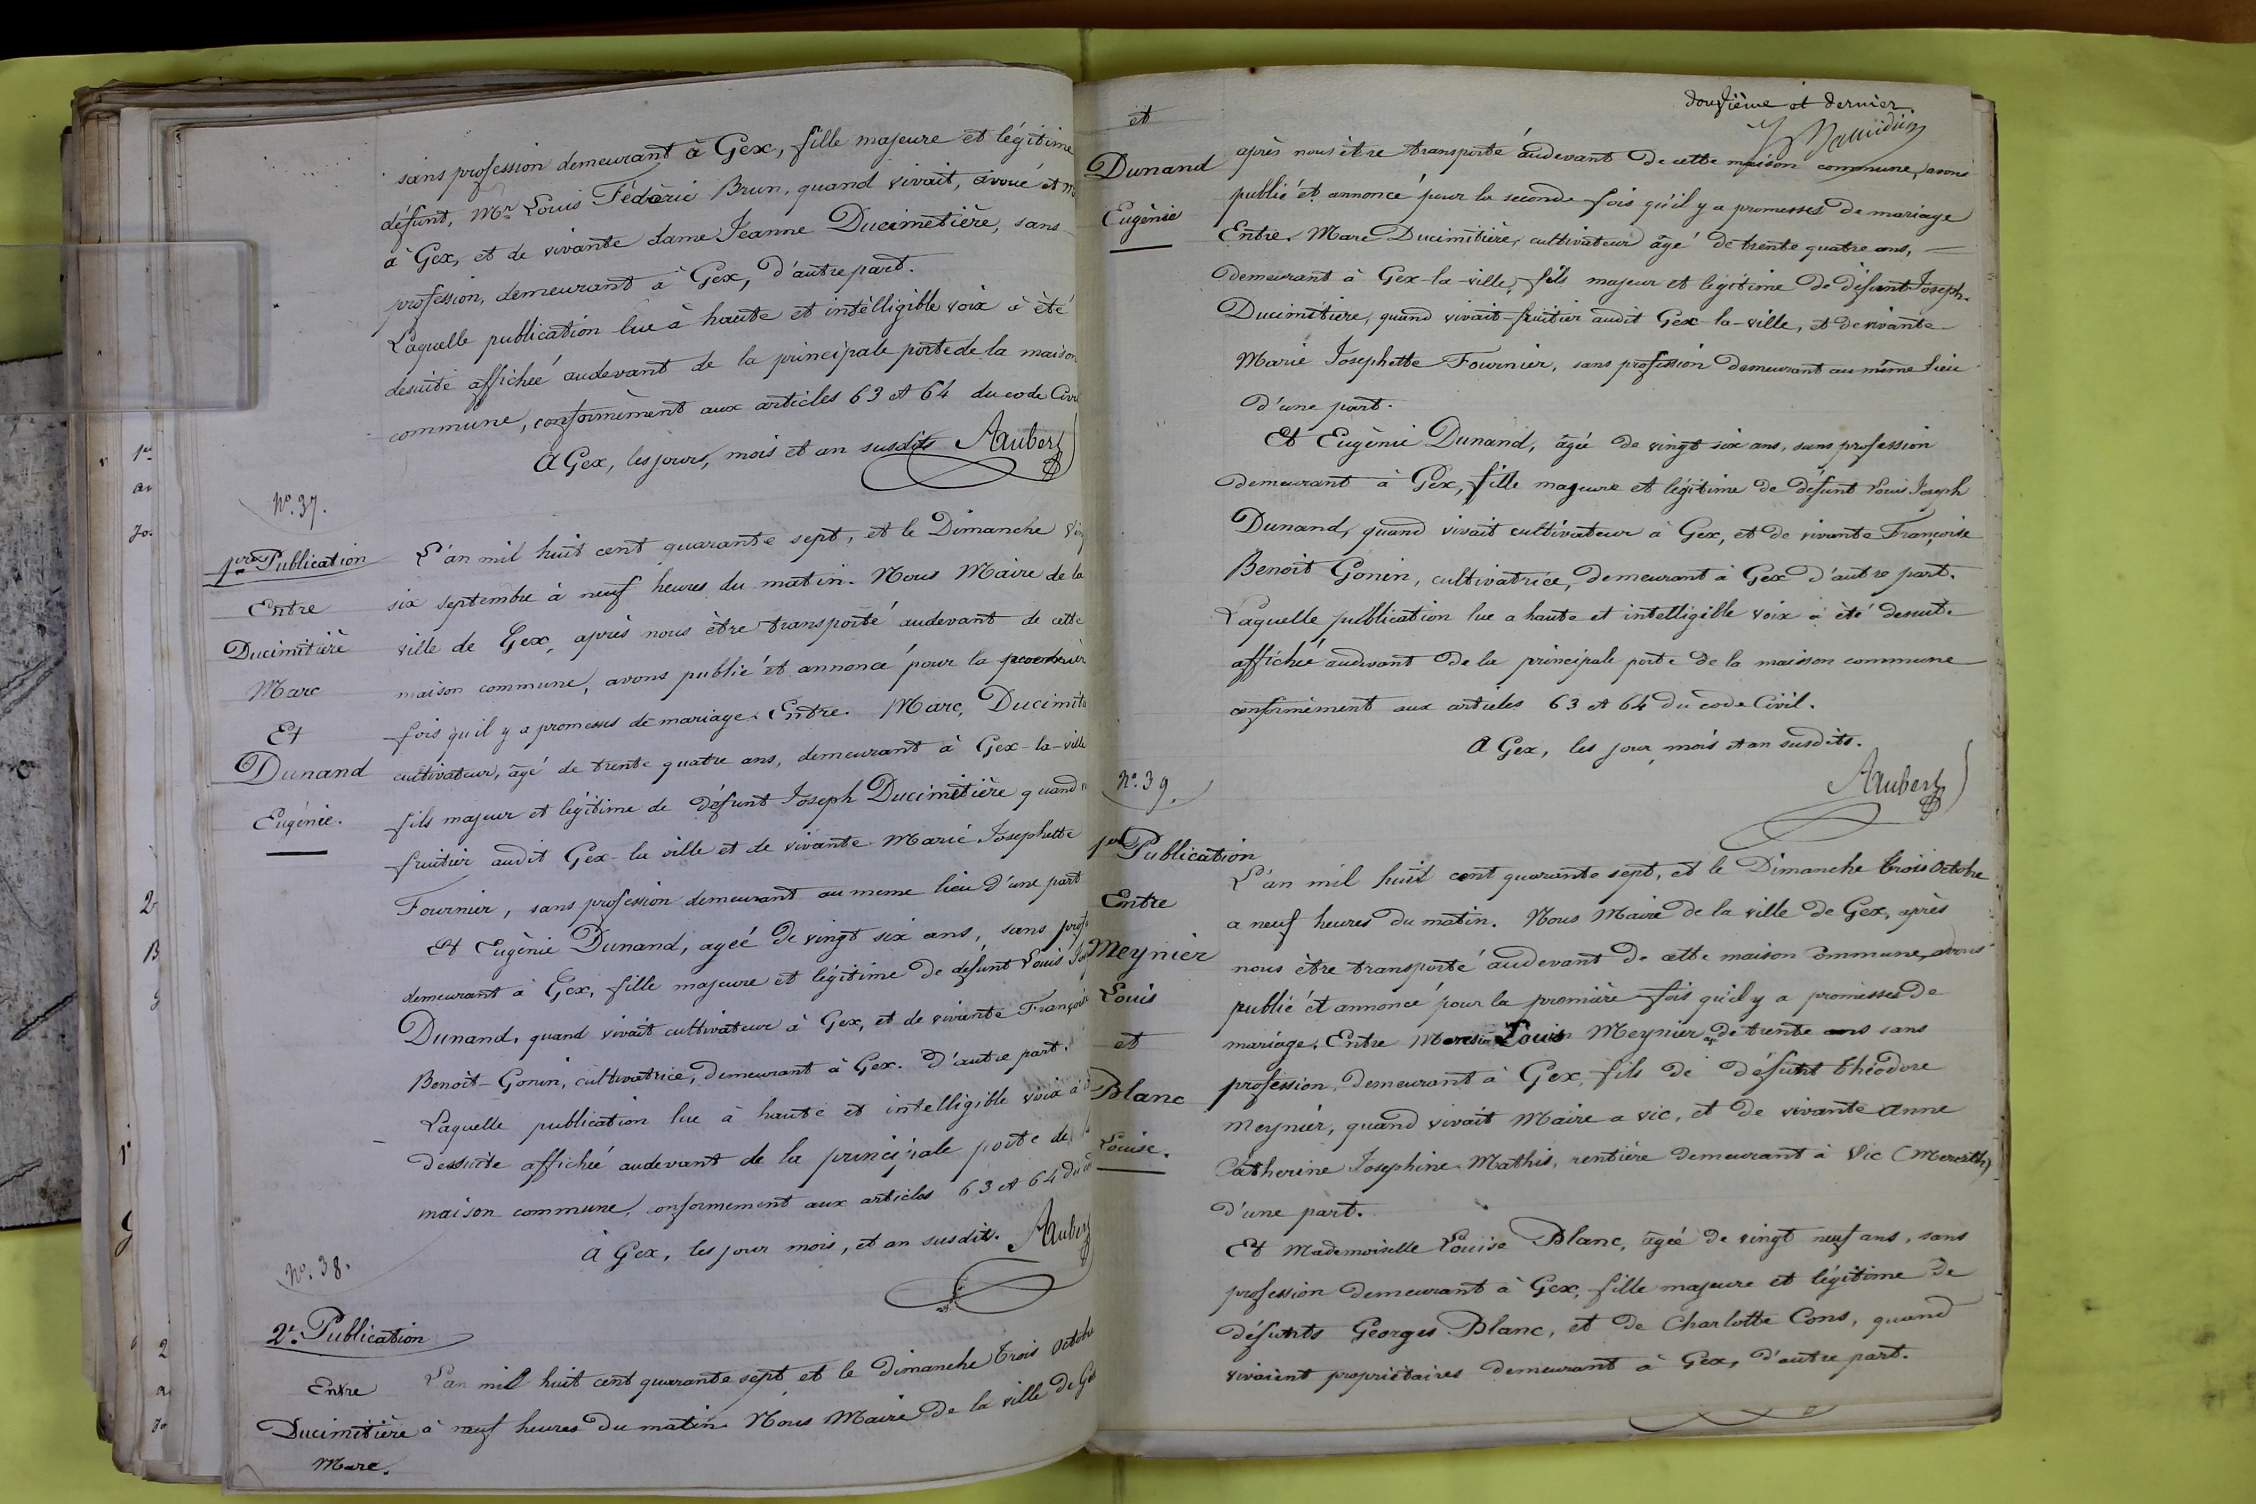 sans profession demeurant à Gex, fille majeure et légitime
défunt, Mr Louis Fédéric Brun, quand vivait, avoué et
à Gex, et de vivante dame Jeanne Ducimetière, sans
profession, demeurant à Gex, d'autre part.
Laquelle publication lue à haute et intélligible voix à été
desuite affichée audevant de la principale porte de la maison
commune, conformément aux articles 63 et 64 du code Civil
A Gex, les jours, mois et an susdits Aubert
No. 37.
1ère Publication
Entre
Ducimitière
Marc
Et
Dunand
Eugénie.
L'an mil huit cent quarante sept, et le Dimanche Vin
six septembre à neuf heures du matin. Nous Maire de la
ville de Gex, après nous être transporté audevant de cette
maison commune, avons publié et annoncé pour la
fois qu'il y a promesses de mariage. Entre. Marc, Ducimitiè
cultivateur, âgé de trente quatre ans, demeurant à Gex-la-ville
fils majeur et légitime de défunt Joseph Ducimitière quand
fruitier audit Gex-la ville et de vivante Marie Josephette
Fournier, sans profession demeurant au meme lieu d'une part
Et Eugènie Dunand, ageé de vingt six ans, sans prof
demeurant à Gex, fille majeure et légitime de défunt Louis Jos
Dunand, quand vivait cultivateur à Gex, et de vivante Françoise
Benoît-Gonin, cultivatrice, demeurant à Gex. d'autre part.
Laquelle publication lue à haute et intelligible voix à
dessuite affichée audevant de la principale porte de
maison commune, conformement aux articles 63 et 64 du
à Gex, les jour mois, et an susdits. Aubert
No. 38.
2e. Publication
Entre
Ducimitière
Marc.
L'an mil huit cent quarante sept et le dimanche trois octobre
à neuf heures du matin Nous Maire de la ville de Gex
et
Dunand
Eugènie
douzième et dernier.
après nous être transporté audevant de cette maison commune, avons
publié et annoncé pour la seconde fois qu'il y a promesses de mariage
Entre. Marc Ducimitière, cultivateur âgé de trente quatre ans,
demeurant à Gex-la-ville, fils majeur et légitime de défunt Joseph
Ducimitière, quand vivait fruitier audit Gex-la-ville, et de vivante
Marie Josephette Fournier, sans profession demeurant au même lieu
d'une part.
Et Eugènie Dunand, âgée de vingt six ans, sans profession
demeurant à Gex, fille majeure et légitime de défunt Louis Joseph
Dunand, quand vivait cultivateur à Gex, et de vivante Françoise
Benoit Gonin, cultivatrice, demeurant à Gex d'autre part.
Laquelle publication lue a haute et intelligible voix à été desuite
affichée audevant de la principale porte de la maison commune
conformément aux articles 63 et 64 du code Civil.
A Gex, les jour, mois et an susdits.
Aubert
No. 39.
1re Publication
Entre
Meynier
Louis
et
Blanc
Louise.
L'an mil huit cent quarante sept, et le Dimanche trois Octobre
a neuf heures du matin. Nous Maire de la ville de Gex, après
nous être transporté audevant de cette maison commune, avons
publié et annoncé pour la première fois qu'il y a promesses de
mariage. Entre Louis Meynier de trente ans sans
profession, demeurant à Gex, fils de défunt théodore
Meynier, quand vivait Maire a vic, et de vivante Anne
Catherine Josephine Mathis, rentière demeurant à Vic (Meurthe)
d'une part.
Et Mademoiselle Louise Blanc, âgée de vingt neuf ans, sans
profession demeurant à Gex, fille majeure et légitime de
défunts Georges Blanc, et de Charlotte Cons, quand
vivaient propriétaires demeurant à Gex, d'autre part.